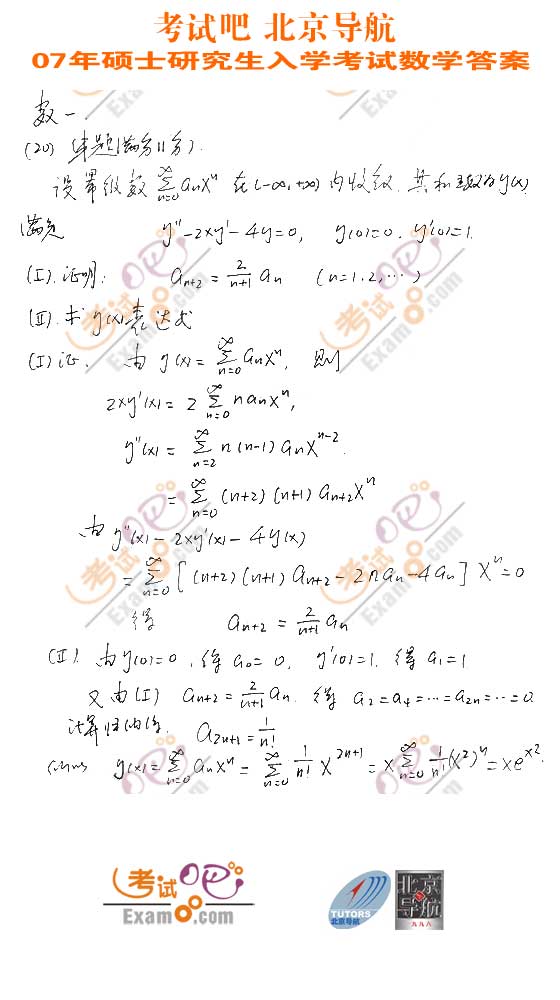 考试吧 北京导航
07年硕士研究生入学考试数学答案
数一.
(20) 本题(满分11分).
设幂级数 ∑_{n=0}^{∞} aₙxⁿ 在(-∞,+∞)内收敛. 其和函数为y(x)
满足 y''-2xy'-4y=0, y(0)=0. y'(0)=1.
(I). 证明: a_{n+2} = \frac{2}{n+1} aₙ (n=1.2,…)
(II). 求 y(x) 表达式
(I) 证. 由 y(x) = ∑_{n=0}^{∞} aₙxⁿ, 则
2xy'(x) = 2 ∑_{n=0}^{∞} naₙxⁿ,
y''(x) = ∑_{n=2}^{∞} n(n-1) aₙx^{n-2}.
= ∑_{n=0}^{∞} (n+2)(n+1) a_{n+2}xⁿ
由 y''(x) - 2xy'(x) - 4y(x)
= ∑_{n=0}^{∞} [(n+2)(n+1) a_{n+2} - 2naₙ - 4aₙ] xⁿ = 0
得 a_{n+2} = \frac{2}{n+1} aₙ
(II). 由y(0)=0, 得 a₀=0, y'(0)=1. 得 a₁=1
又由(I) a_{n+2} = \frac{2}{n+1} aₙ. 得 a₂=a₄=…=a_{2n}=…=0
计算归纳得. a_{2n+1} = \frac{1}{n!}
y(x) = ∑_{n=0}^{∞} aₙxⁿ = ∑_{n=0}^{∞} \frac{1}{n!} x^{2n+1} = x ∑_{n=0}^{∞} \frac{1}{n!} (x²)ⁿ = xe^{x²}.
考试吧
Exam8.com
TUTORS
北京导航
北京
导航
九九八